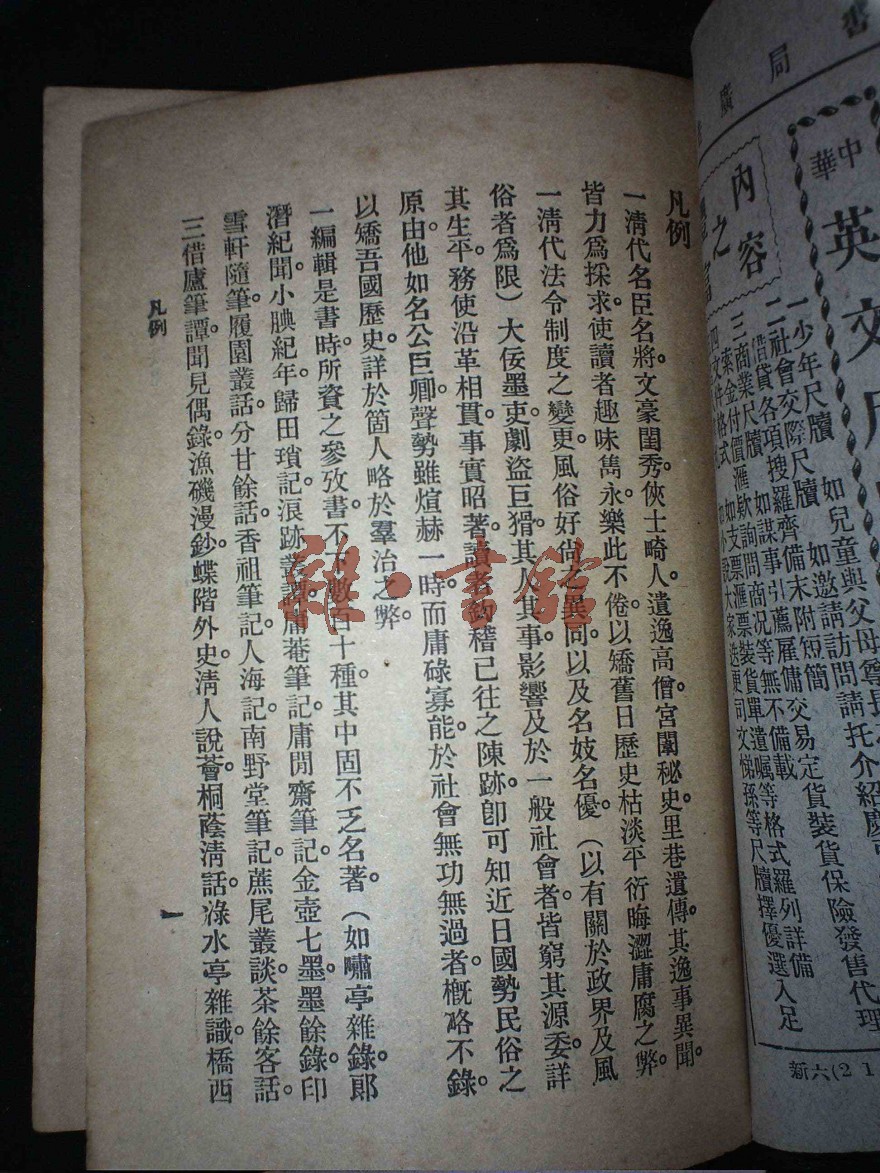 凡例
一清代名臣名將。文豪閨秀。俠士畸人。遺逸高僧。宮闈秘史。里巷遺傳。其逸事異聞。
皆力爲採求。使讀者趣味雋永。樂此不倦。以矯舊日歷史枯淡平衍晦澀庸腐之弊。
一清代法令制度之變更。風俗好尚之異同。以及名妓名優。（以有關於政界及風
俗者爲限）大佞墨吏。劇盜巨猾。其人其事。影響及於一般社會者。皆窮其源委。詳
其生平。務使沿革相貫。事實昭著。讀者鉤稽已往之陳跡。卽可知近日國勢民俗之
原由。他如名公臣卿。聲勢雖煊赫一時。而庸碌寡能。於社會無功無過者。槪略不錄。
以矯吾國歷史詳於箇人略於羣治之弊。
一編輯是書時。所資之參攷書。不下數百十種。其中固不乏名著。（如嘯亭雜錄。郞
潛紀聞。小腆紀年。歸田瑣記。浪跡叢譚。庸菴筆記。庸閒齋筆記。金壺七墨。墨餘錄。印
雪軒隨筆。履園叢話。分甘餘話。香祖筆記。人海記。南野堂筆記。蕉尾叢談。茶餘客話。
三借廬筆譚。聞見偶錄。漁磯漫鈔。蝶階外史。淸人說薈。桐蔭淸話。淥水亭雜識。橋西
凡例
一
雜·書館
書
局
廣
中華
英文
內容
之
一少年尺牘 如兒童與父母尊長
二社會交際尺牘 如邀請訪問請托介紹慶
借貸各項搜羅齊備末附短簡
三商業尺牘 如謀事引薦雇傭交易定貨裝貨保險發售代理
索金付價滙欵詢問商况等無不備載
四文件格式 如支票滙票裝貨單遺囑等格式羅列詳備
小說大家迭更司文悌孫等尺牘擇優選入足
新六(2 1